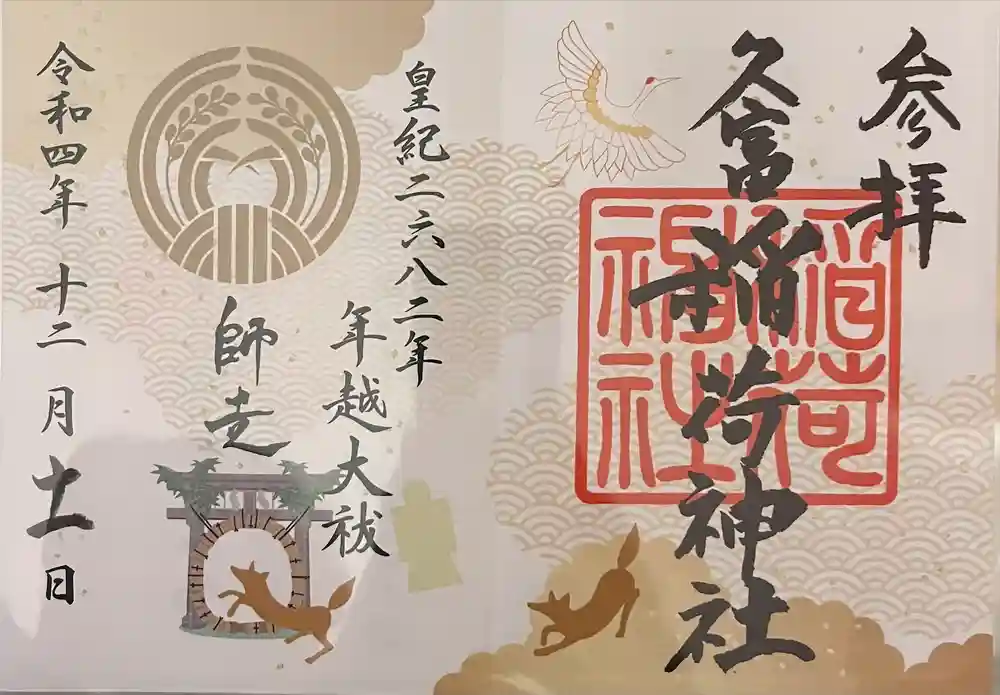 参拝
久富稲荷神社
稲荷
神社
皇紀二六八二年
年越大祓
師走
令和四年 十二月 十一日